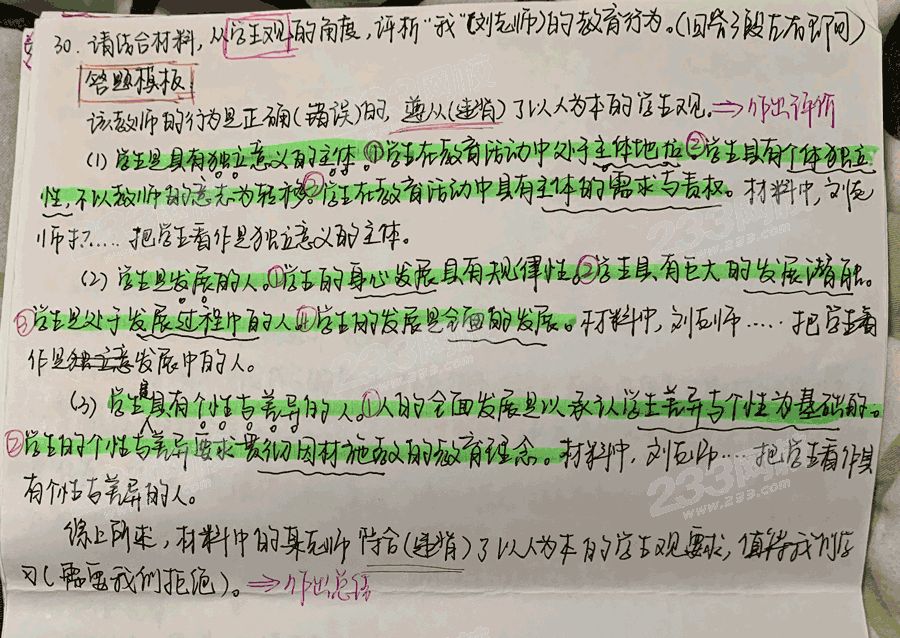 30. 请结合材料，从学生观的角度，评析"我"(刘老师)的教育行为。(回答3段左右即可)
答题模板:
该教师的行为是正确(错误)的，遵从(违背)了以人为本的学生观。⇒作出评价
(1) 学生是具有独立意义的主体。①学生在教育活动中处于主体地位。②学生具有个体独立
性，不以教师的意志为转移。③学生在教育活动中具有主体的需求与责权。材料中，刘老
师把……把学生看作是独立意义的主体。
(2) 学生是发展的人。①学生的身心发展具有规律性。②学生具有巨大的发展潜能。
③学生是处于发展过程中的人。④学生的发展是全面的发展。材料中，刘老师……把学生看
作是发展中的人。
(3) 学生是具有个性与差异的人。①人的全面发展是以承认学生差异与个性为基础的。
②学生的个性与差异要求贯彻因材施教的教育理念。材料中，刘老师……把学生看作具
有个性与差异的人。
综上所求，材料中的某老师符合(违背)了以人为本的学生观要求，值得我们学
习(需要我们拒绝)。⇒作出总结
233网校
www.233.com